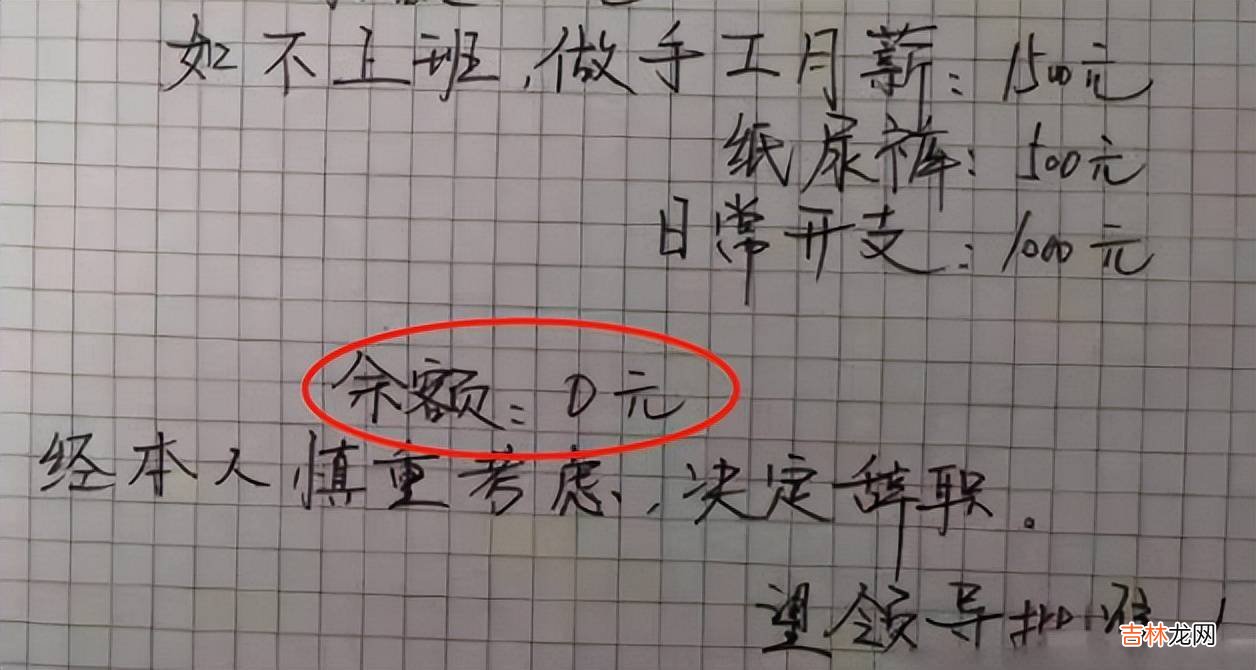 如不上班,做手工月薪:1500元
纸尿裤:500元
日常开支:1000元
余额:0元
经本人慎重考虑,决定辞职。
望领导批准!
吉林龙网